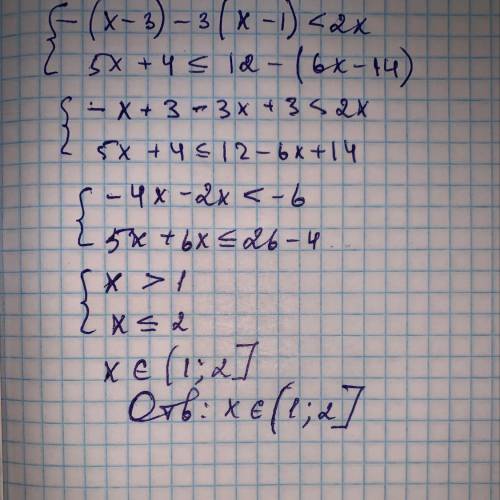 { -(x-3)-3(x-1)<2x
5x+4≤12-(6x-14)
{ -x+3-3x+3<2x
5x+4≤12-6x+14
{ -4x-2x<-6
5x+6x≤26-4
{ x>1
x≤2
x∈(1;2]
Отв: x∈(1;2]